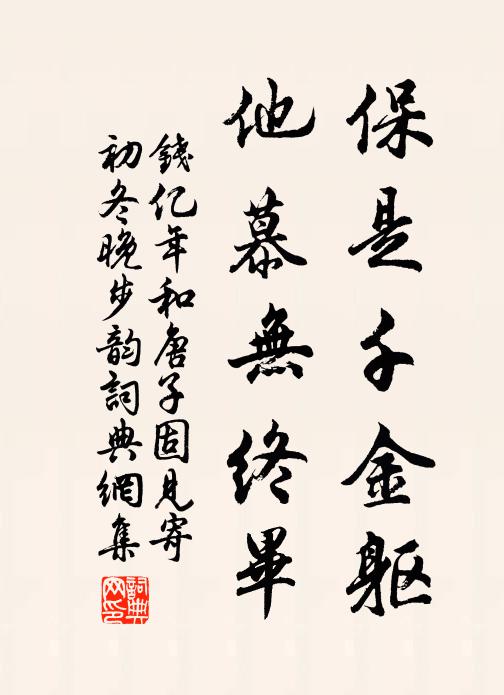 保是千金躯
他慕無終畢
錢亿年和唐子固見寄
初冬晚步韵詞典網集
詞典網印